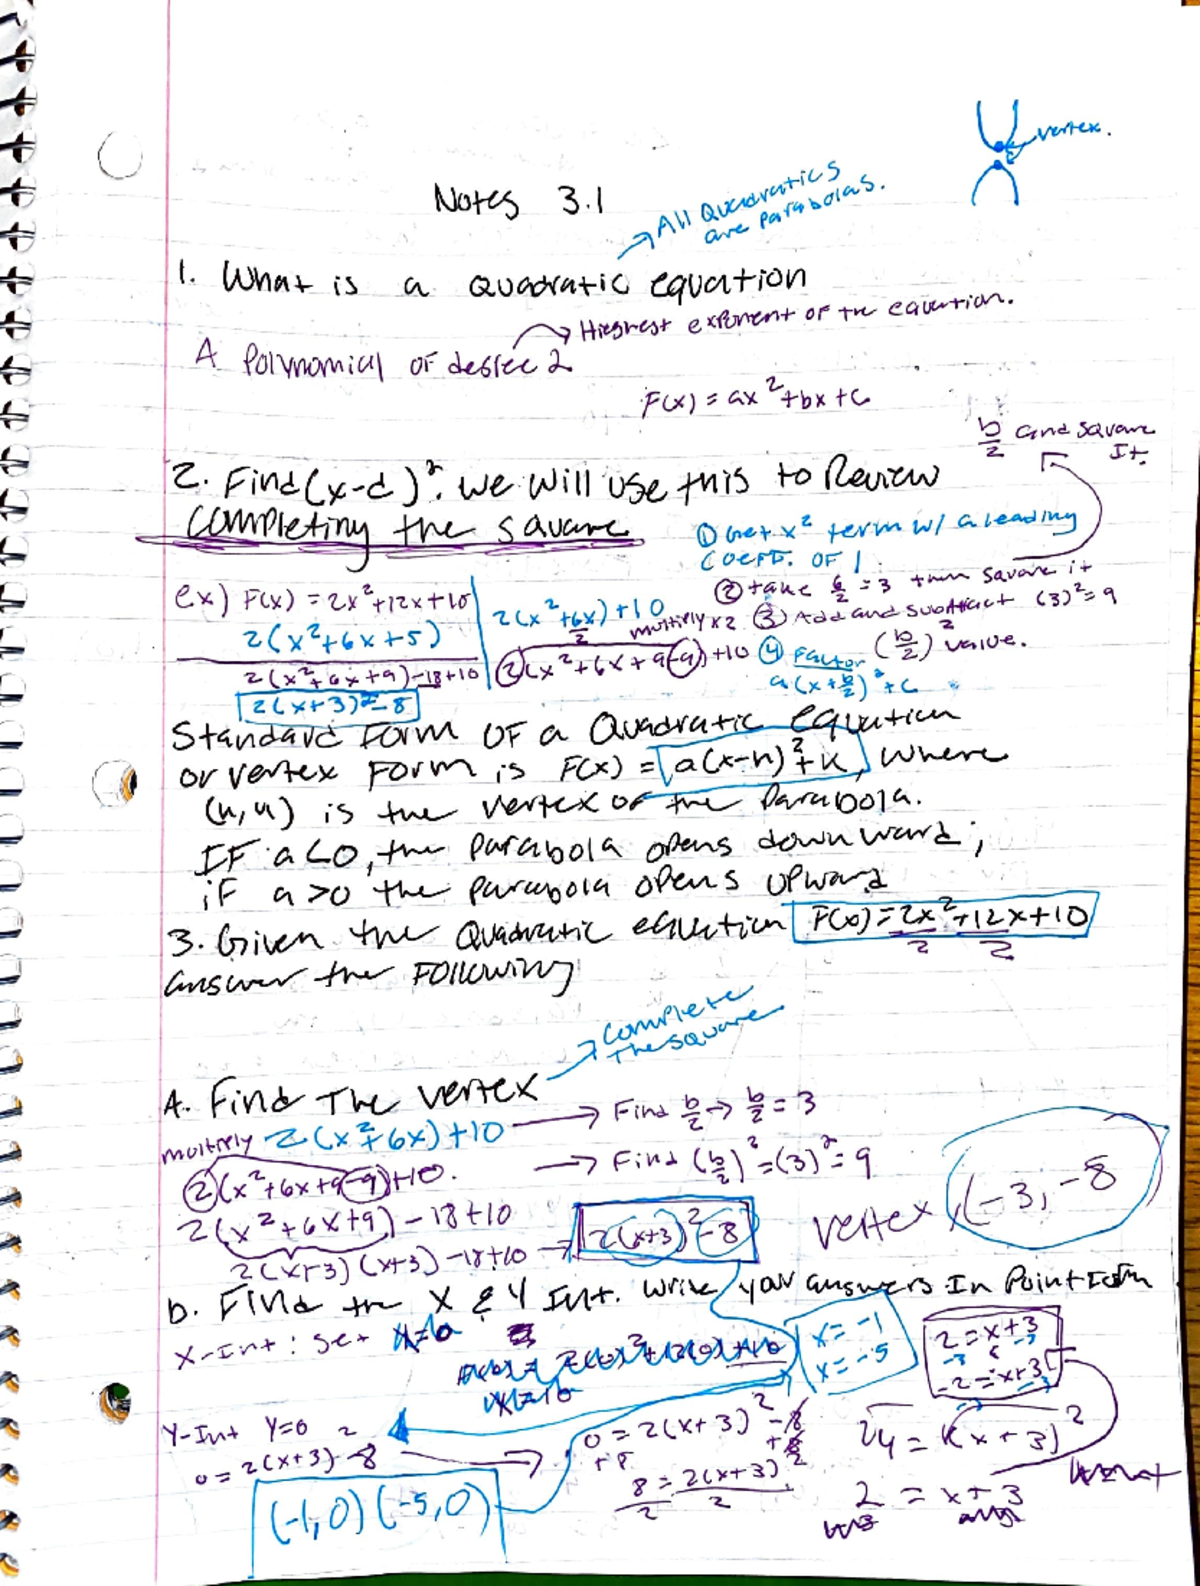 vertex.
Notes 3.1
→ All Quadratics
are Parabolas.
1. What is a Quadratic equation
→ Highest exponent of the equation.
A Polynomial of degree 2
F(x) = ax² + bx + c
b/2 and square
It.
2. Find (x-d)². We will use this to Review
completing the square
① Get x² term w/ a leading
coeff. of 1
② take 6/2 = 3 then square it
③ Add and subtract (3)² = 9
(b/2)² value.
④ Factor
a(x+b/2)² + c
ex) F(x) = 2x² + 12x + 10
2(x² + 6x + 5)
2(x² + 6x + 9) - 18 + 10
2(x+3)² - 8
2(x² + 6x) + 10
2
multiply x2
2(x² + 6x + 9 - 9) + 10
Standard Form of a Quadratic equation
or vertex Form is F(x) = a(x-h)² + k, where
(h,k) is the vertex of the Parabola.
IF a < 0, the parabola opens downward;
if a > 0 the parabola opens upward
3. Given the Quadratic equation F(x) = 2x² + 12x + 10
2 2
answer the Following
→ Complete
The square
A. Find The vertex
multiply 2(x² + 6x) + 10 → Find b/2 → b/2 = 3
2(x² + 6x + 9 - 9) + 10. → Find (b/2)² = (3)² = 9
2(x² + 6x + 9) - 18 + 10
2(x+3)(x+3) - 18 + 10 → 2(x+3)² - 8
vertex, (-3, -8
b. Find the X & Y Int. Write your answers In Point Form
X-Int: Set
x = -1
x = -5
2 = x + 3
-3 -3
-2 = x + 3
-3 -3
Y-Int Y=0
0 = 2(x+3)² - 8 →
(-1,0) (-5,0)
0 = 2(x+3)² - 8
+8 +8
8 = 2(x+3)²
2 2
√4 = √(x+3)²
2 = x + 3